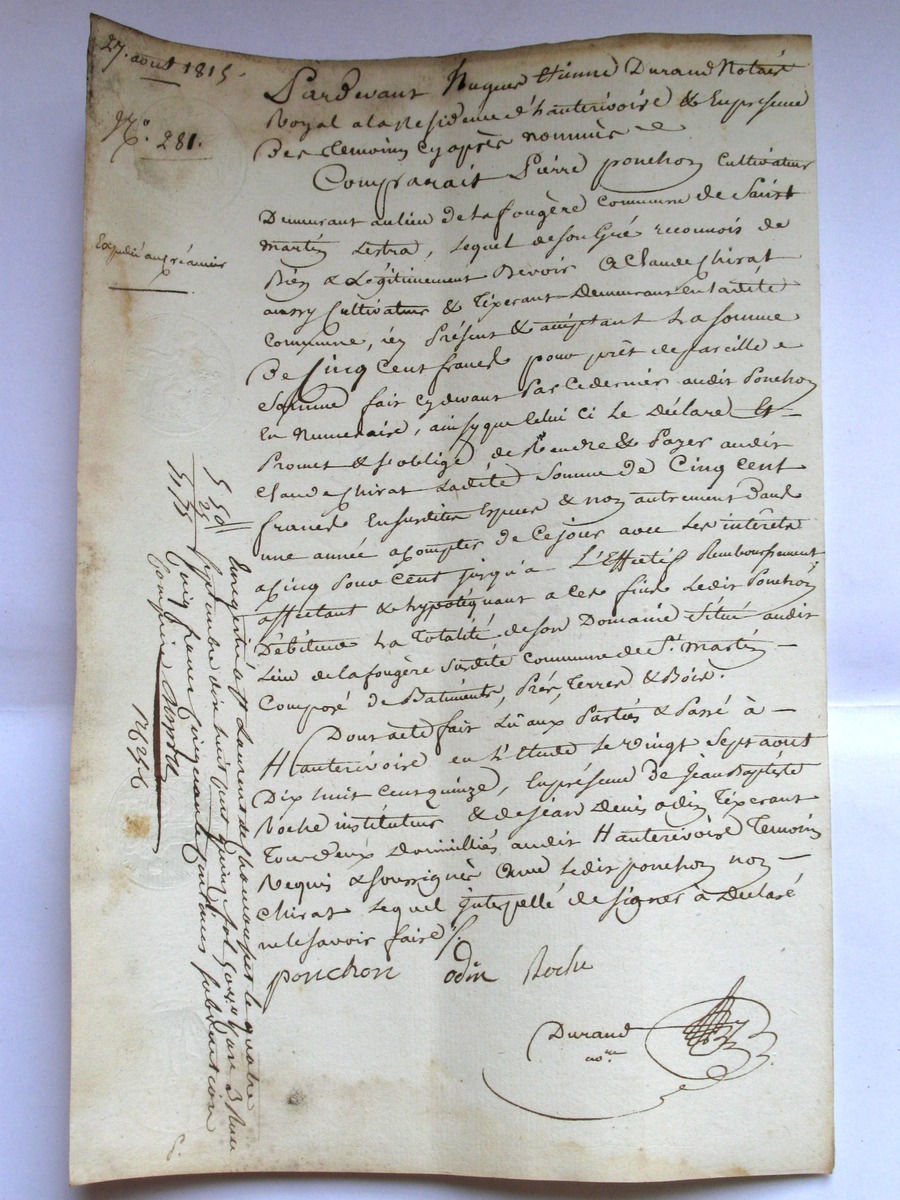 27. août 1815.
N.o 281.
Expédié au créancier
Pardevant Hugues Etienne Durand Notaire
Royal a la Residence d'hauterivoire & En presence
Des temoins cyaprès nommés
Comparait Pierre ponchon Cultivateur
Demeurant au lieu de La fougère Commune de Saint
Martin Lestra, Lequel de son Gré reconnois de
Bien & Légitimement Devoir a Claude Chirat
aussy Cultivateur & Tixerant Demeurant en ladite
Commune, icy Présent & acceptant La somme
De Cinq Cent francs pour prêt de pareille
Somme fait cydevant Par ce dernier audit Ponchon
En Numeraire, ainsy que Celui ci Le Déclare Et
Promet & s'oblige de Rendre & Payer audit
Claude Chirat Ladite Somme de Cinq Cent
francs En susdites Especes & non autrement Dans
une année a Compter de Ce jour avec Les intérêts
a Cinq Pour Cent jusqu'a L'Effectif Remboursement
affectant & hypotéquant a Ces fins Ledit Ponchon
Débiteur La Totalité de son Domaine Situé audit
Lieu de La fougère Susdite Commune de St. Martin
Composé de Batiments, Prés, Terres & Bois.
Dont acte fait Lu aux Parties & Passé à
Hauterivoire en L'Etude Le vingt Sept aout
Dix huit Cent quinze, En présence de Jean Baptiste
Roche instituteur & de Jean Denis odin Tixerant
Tous deux Domiciliés audit Hauterivoire Temoins
Requis & soussignés avec Ledit ponchon non
Chirat Lequel interpellé de signer à Déclaré
ne le savoir faire
ponchon odin Roche
Durand
no.re
Enregistré à St Laurent de Chamousset le quatre
Septembre dix huit cent quinze fol.
Cinq francs cinquante centimes subvention
Comprise